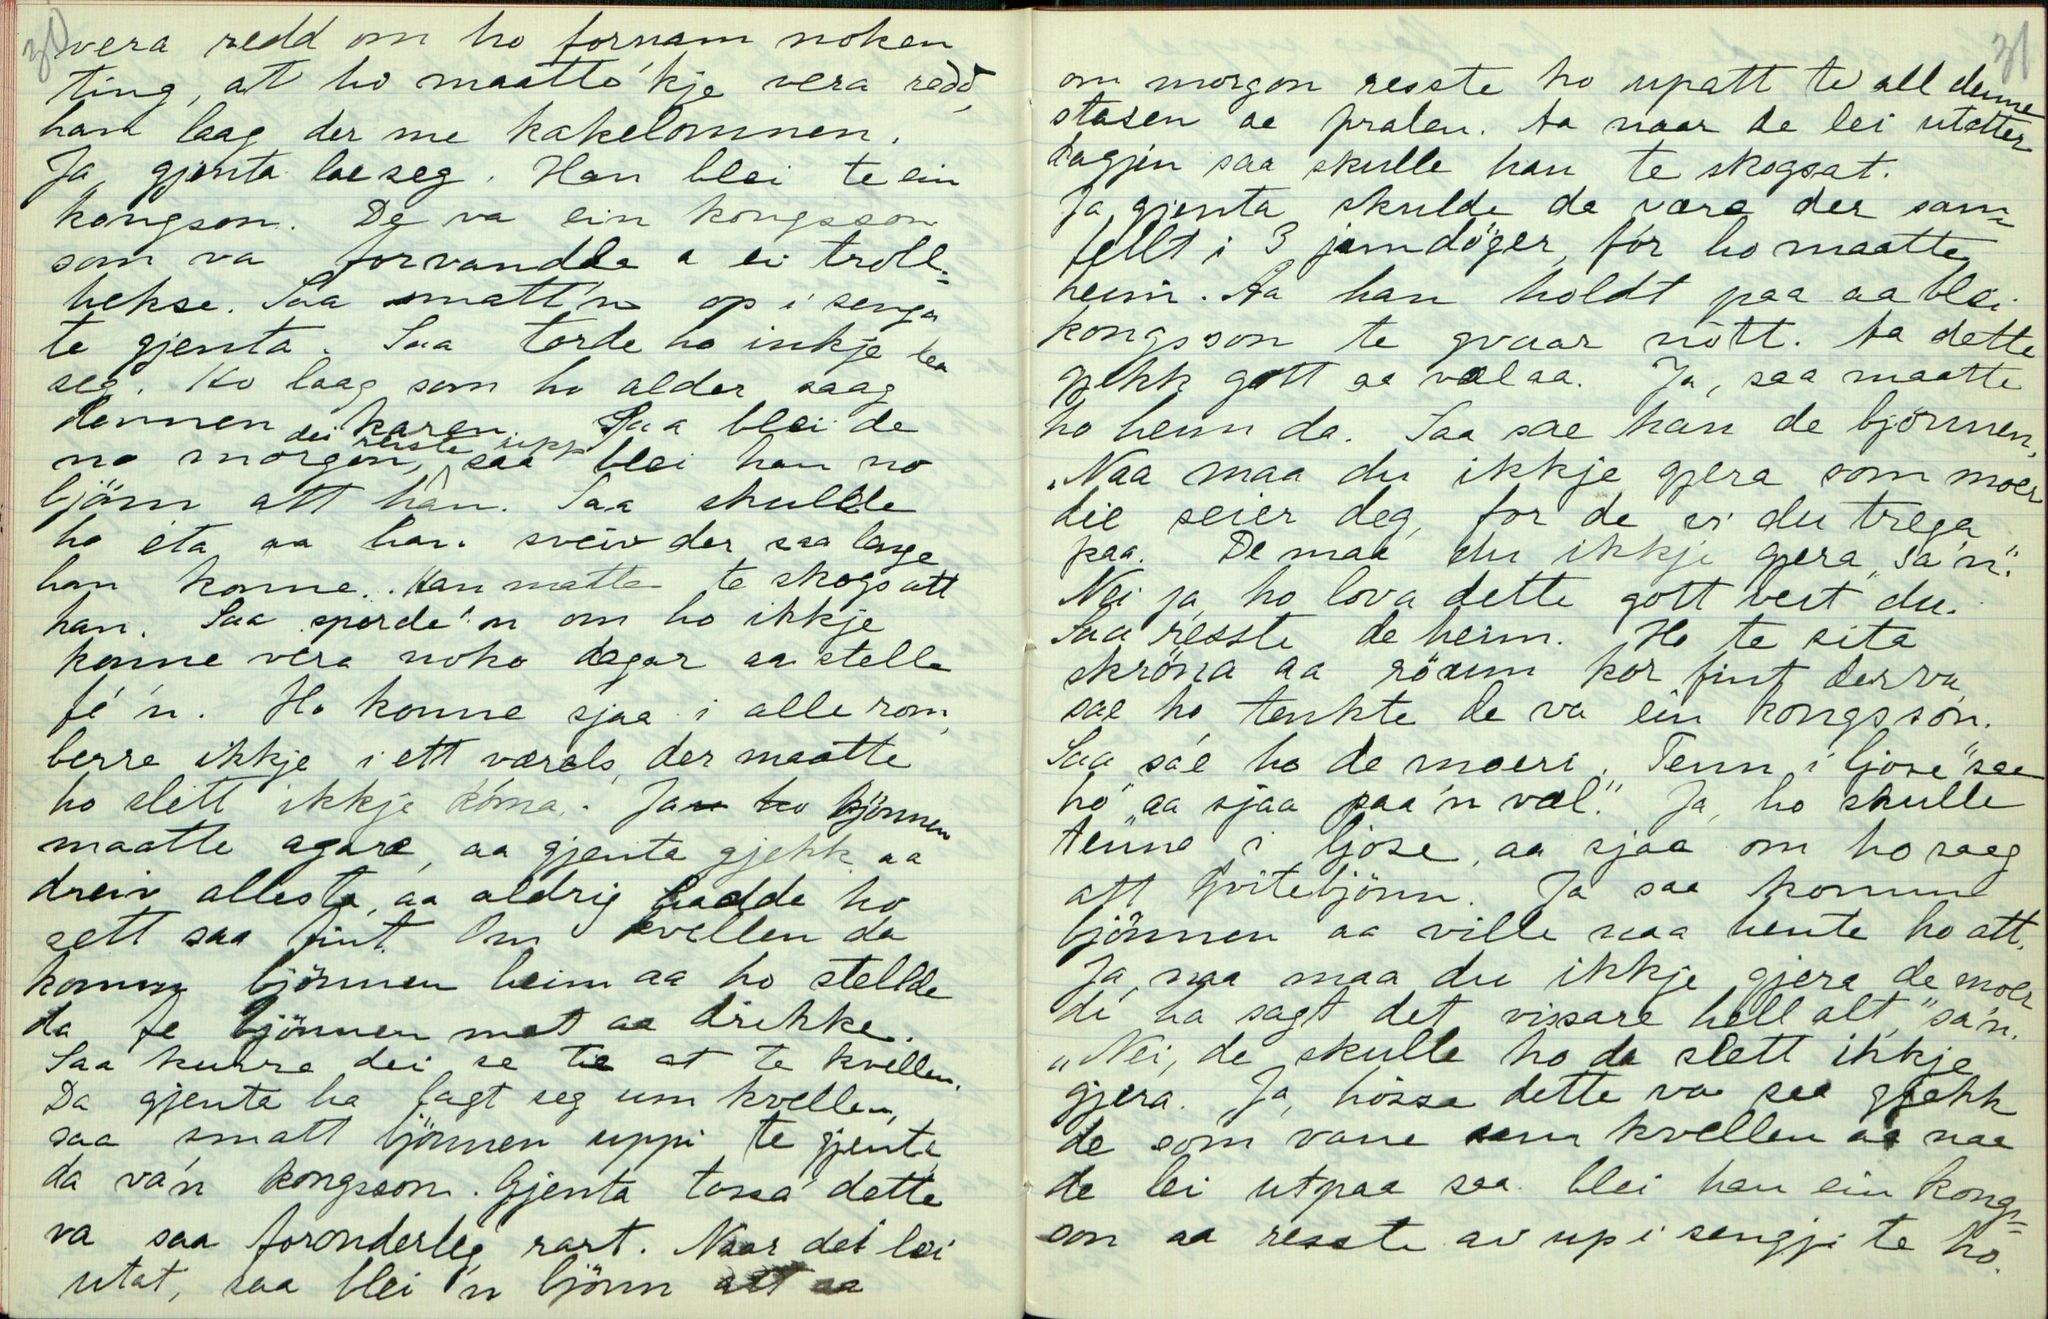 30
vera redd om ho fornam noken
ting, at ho maatte 'kje vera redd,
han laag der me kakelomnen.
Ja, gjenta lae seg. Han blei te ein
kongson. De va ein kongsson
som va forvandla a ei troll-
hekse. Saa smatt'n op i senga
te gjenta. Saa torde ho inkje lea
seg. Ho laag som ho alder saag
dennen karen. Saa blei de
dei reiste upp
no morgon, saa blei han no
bjönn att han. Saa skulde
ho eta aa han sveiv der saa lenge
han konne. Han matte te skogs att
han. Saa sporde'n om ho ikkje
konne vera noko dagar aa stelle
fé'n. Ho konne sjaa i alle rom,
berre ikkje i ett værels, der maatte
ho slett ikkje koma. Ja bjönnen
maatte agare, aa gjenta gjekk aa
dreiv allesta, aa aldrig hadde ho
sett saa fint. Om kvellen da
komm bjönnen heim aa ho stellde
da fe bjönnen mat aa drikke.
Saa kurra dei se te at te kvellen.
Da gjenta ha lagt seg um kvellen,
saa smatt bjönnen uppi te gjenta,
da va'n kongsson. Gjenta tossa dette
va saa foronderleg rart. Naar dei lei
utat, saa blei 'n bjönn att aa
31
om morgon resste ho upatt te all denne
stasen aa pralen. Aa naar de lei utetter
dagjen saa skulle han te skogsat.
Ja gjenta skulde da være der sam-
fellt i 3 jamdöger, för ho maatte
heim. Aa han holdt paa aa blei
kongsson te qvaar nött. Aa dette
gjekk gott aa væl aa. Ja, saa maatte
ho heim da. Saa sae han de bjönnen,
"Naa maa du ikkje gjera som moer
die seier deg, for de vi du trega
paa. De maa du ikkje gjera", sa'n".
Nei ja, ho lova dette gott veit du.
Saa resste de heim. Ho te sita
skröna aa röum kor fint der va,
sae ho tenkte de va ein kongsson.
Saa sae ho de moeri. "Tenn i ljose" sae
ho "aa sjaa paa'n væl". Ja, ho skulle
tenne i ljose, aa sjaa om ho saag
att Qvitebjönn. Ja saa komm
bjönnen aa ville naa hente ho att.
Ja, naa maa du ikkje gjera de moer
di ha sagt det vissare hell alt," sa'n.
"Nei, de skulle ho da slett ikkje
gjera. Ja, hossa dette va saa gjekk
de som vane um kvellen aa naa
de lei utpaa saa blei han ein kongs-
son aa resste av up i sengji te ho.